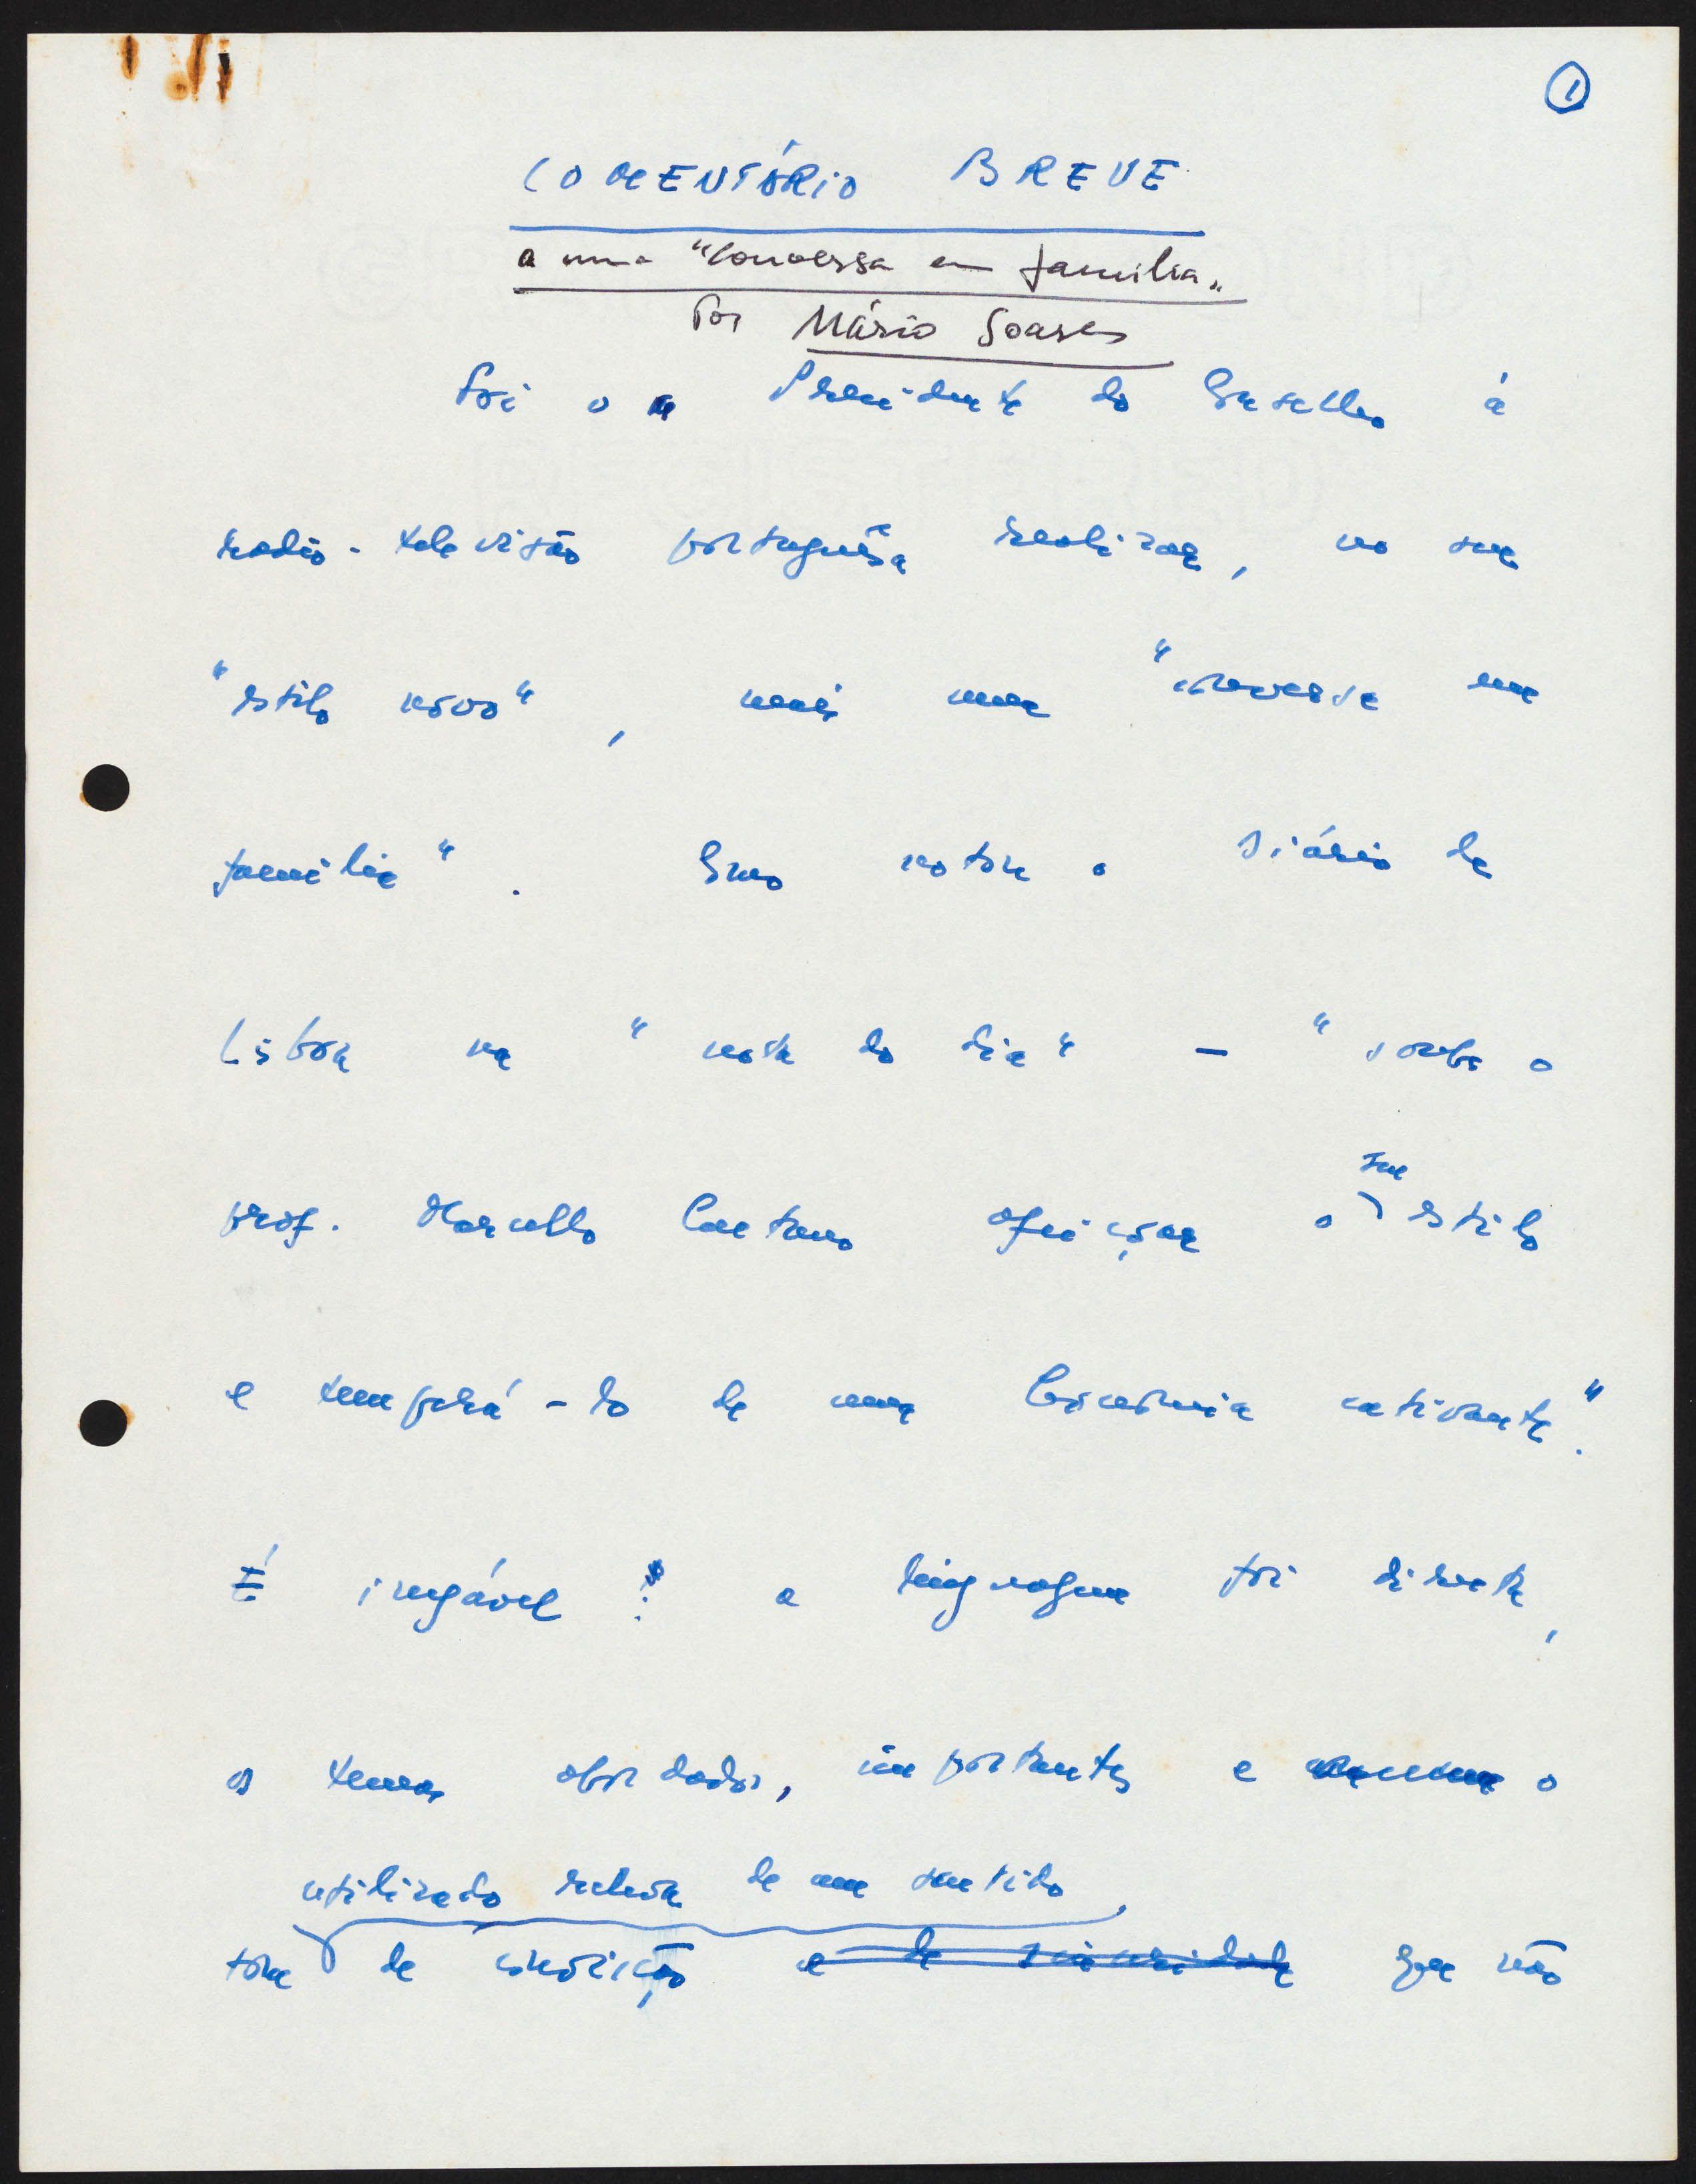 1
COMENTÁRIO BREVE
a uma "Conversa em família"
Por Mário Soares
Foi o Presidente do Conselho à
radio-televisão portuguêsa realizar, no seu
"estilo nôvo", mais uma "conversa em
família". Como notou o Diário de
Lisboa na "nota do dia" - "soube o
prof. Marcello Caetano afeiçoar o
seu
estilo
e temperá-lo de uma bonomia cativante".
É inegável: a linguagem foi directa,
os temas abordados, importantes e o
utilizado releva de um sentido
tom de convicção e de sinceridade que não